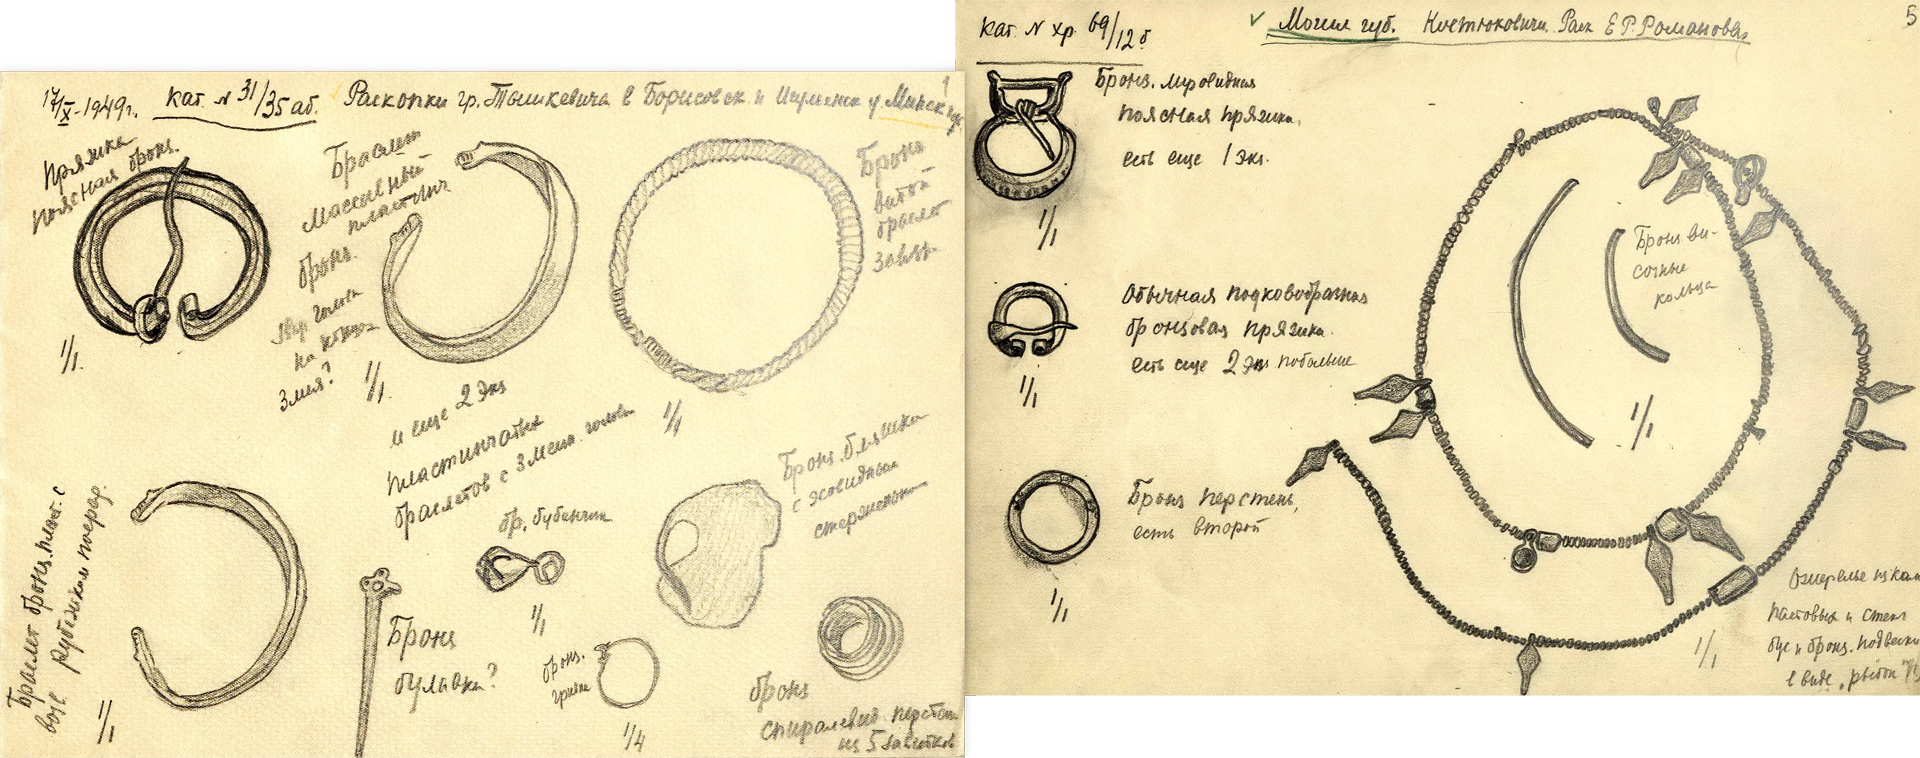 17/X-1949г. кат. № 31/35 аб. Раскопки гр. Тышкевича в Борисовск. и Игуменск у. Минск
Пряжка
поясная бронз.
1/1
Браслет
массивный
пластинч
бронз.
звр. голова
на концах
Змея?
1/1
и еще 2 экз
пластинчатых
браслетов с змеин. голова
Бронз
витой
браслет
завяз.
1/1
Браслет бронз. пласт. с
рубежком поперед.
1/1
Бронз
булавка?
бр. бубенчик
1/1
бронз.
гривна
1/4
Бронз. бляшка
с эсовидным
стержнем
бронз
спиралевид перстень
из 5 завитков
кат. № хр. 69/12 б
Могил губ. Костюковичи. Раск Е Р. Романова.
5
Бронз. лировидная
поясная пряжка.
есть еще 1 экз.
1/1
Обычная подковообразная
бронзовая пряжка.
есть еще 2 экз побольше
1/1
Бронз перстень,
есть второй
1/1
Бронз ви-
сочные
кольца
1/1
Ожерелье из кам
пастовых и стекл
бус и бронз. подвески
в виде "рыбок"
1/1